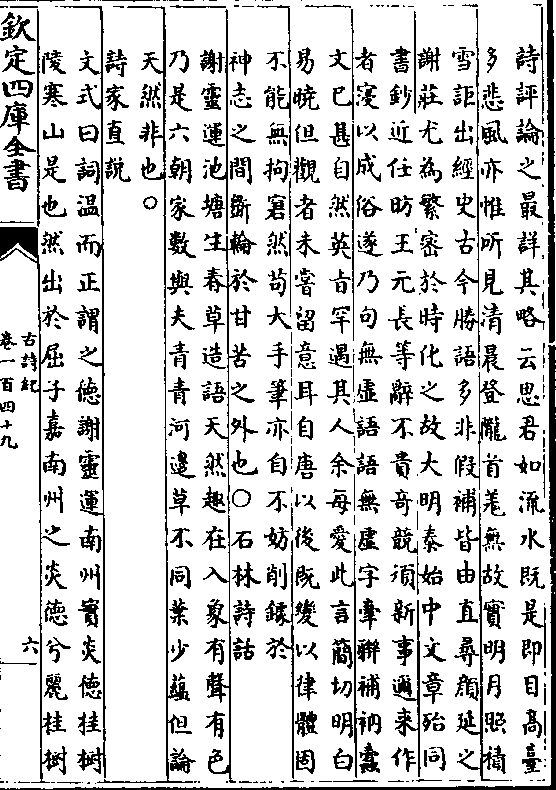 詩評論之最詳其略云思君如流水既是即目髙臺
多悲風亦惟所見清晨登隴首羗無故實明月照積
雪詎出經史古今勝語多非假補皆由直尋顔延之
謝莊尤為繁密於時化之故大明泰始中文章殆同
書鈔近任昉王元長等辭不貴竒競須新事邇来作
者寖以成俗遂乃句無虚語語無虚字牽聨補衲蠧
文已甚自然英㫖罕遇其人余每愛此言簡切明白
易曉但觀者未嘗留意耳自唐以後既變以律體固
不能無拘窘然苟大手筆亦自不妨削鐻於
神志之間斵輪於甘苦之外也○石林詩話
謝靈運池塘生春草造語天然趣在入象有聲有色
乃是六朝家數與夫青青河邉草不同葉少藴但論
天然非也○
詩家直説
文式曰詞温而正謂之徳謝靈運南州實炎徳桂樹
陵寒山是也然出於屈子嘉南州之炎徳兮麗桂樹
欽定四庫全書
古詩紀
卷一百四十九
六